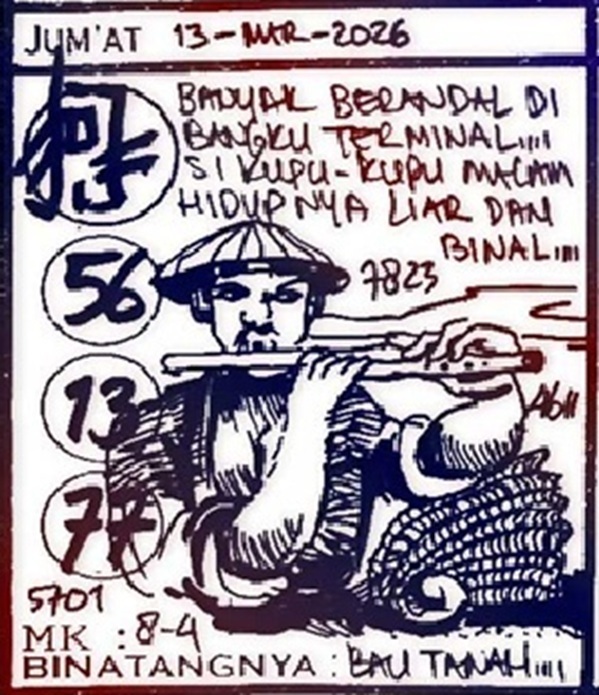 JUM'AT 13-MAR-2026
BANYAK BERANDAL DI
BANGKU TERMINAL....
SI KUPU-KUPU MALAM
HIDUPNYA LIAR DAN
BINAL....
7823
56
13
77
5701
MK : 8-4
BINATANGNYA : BAU TANAH....